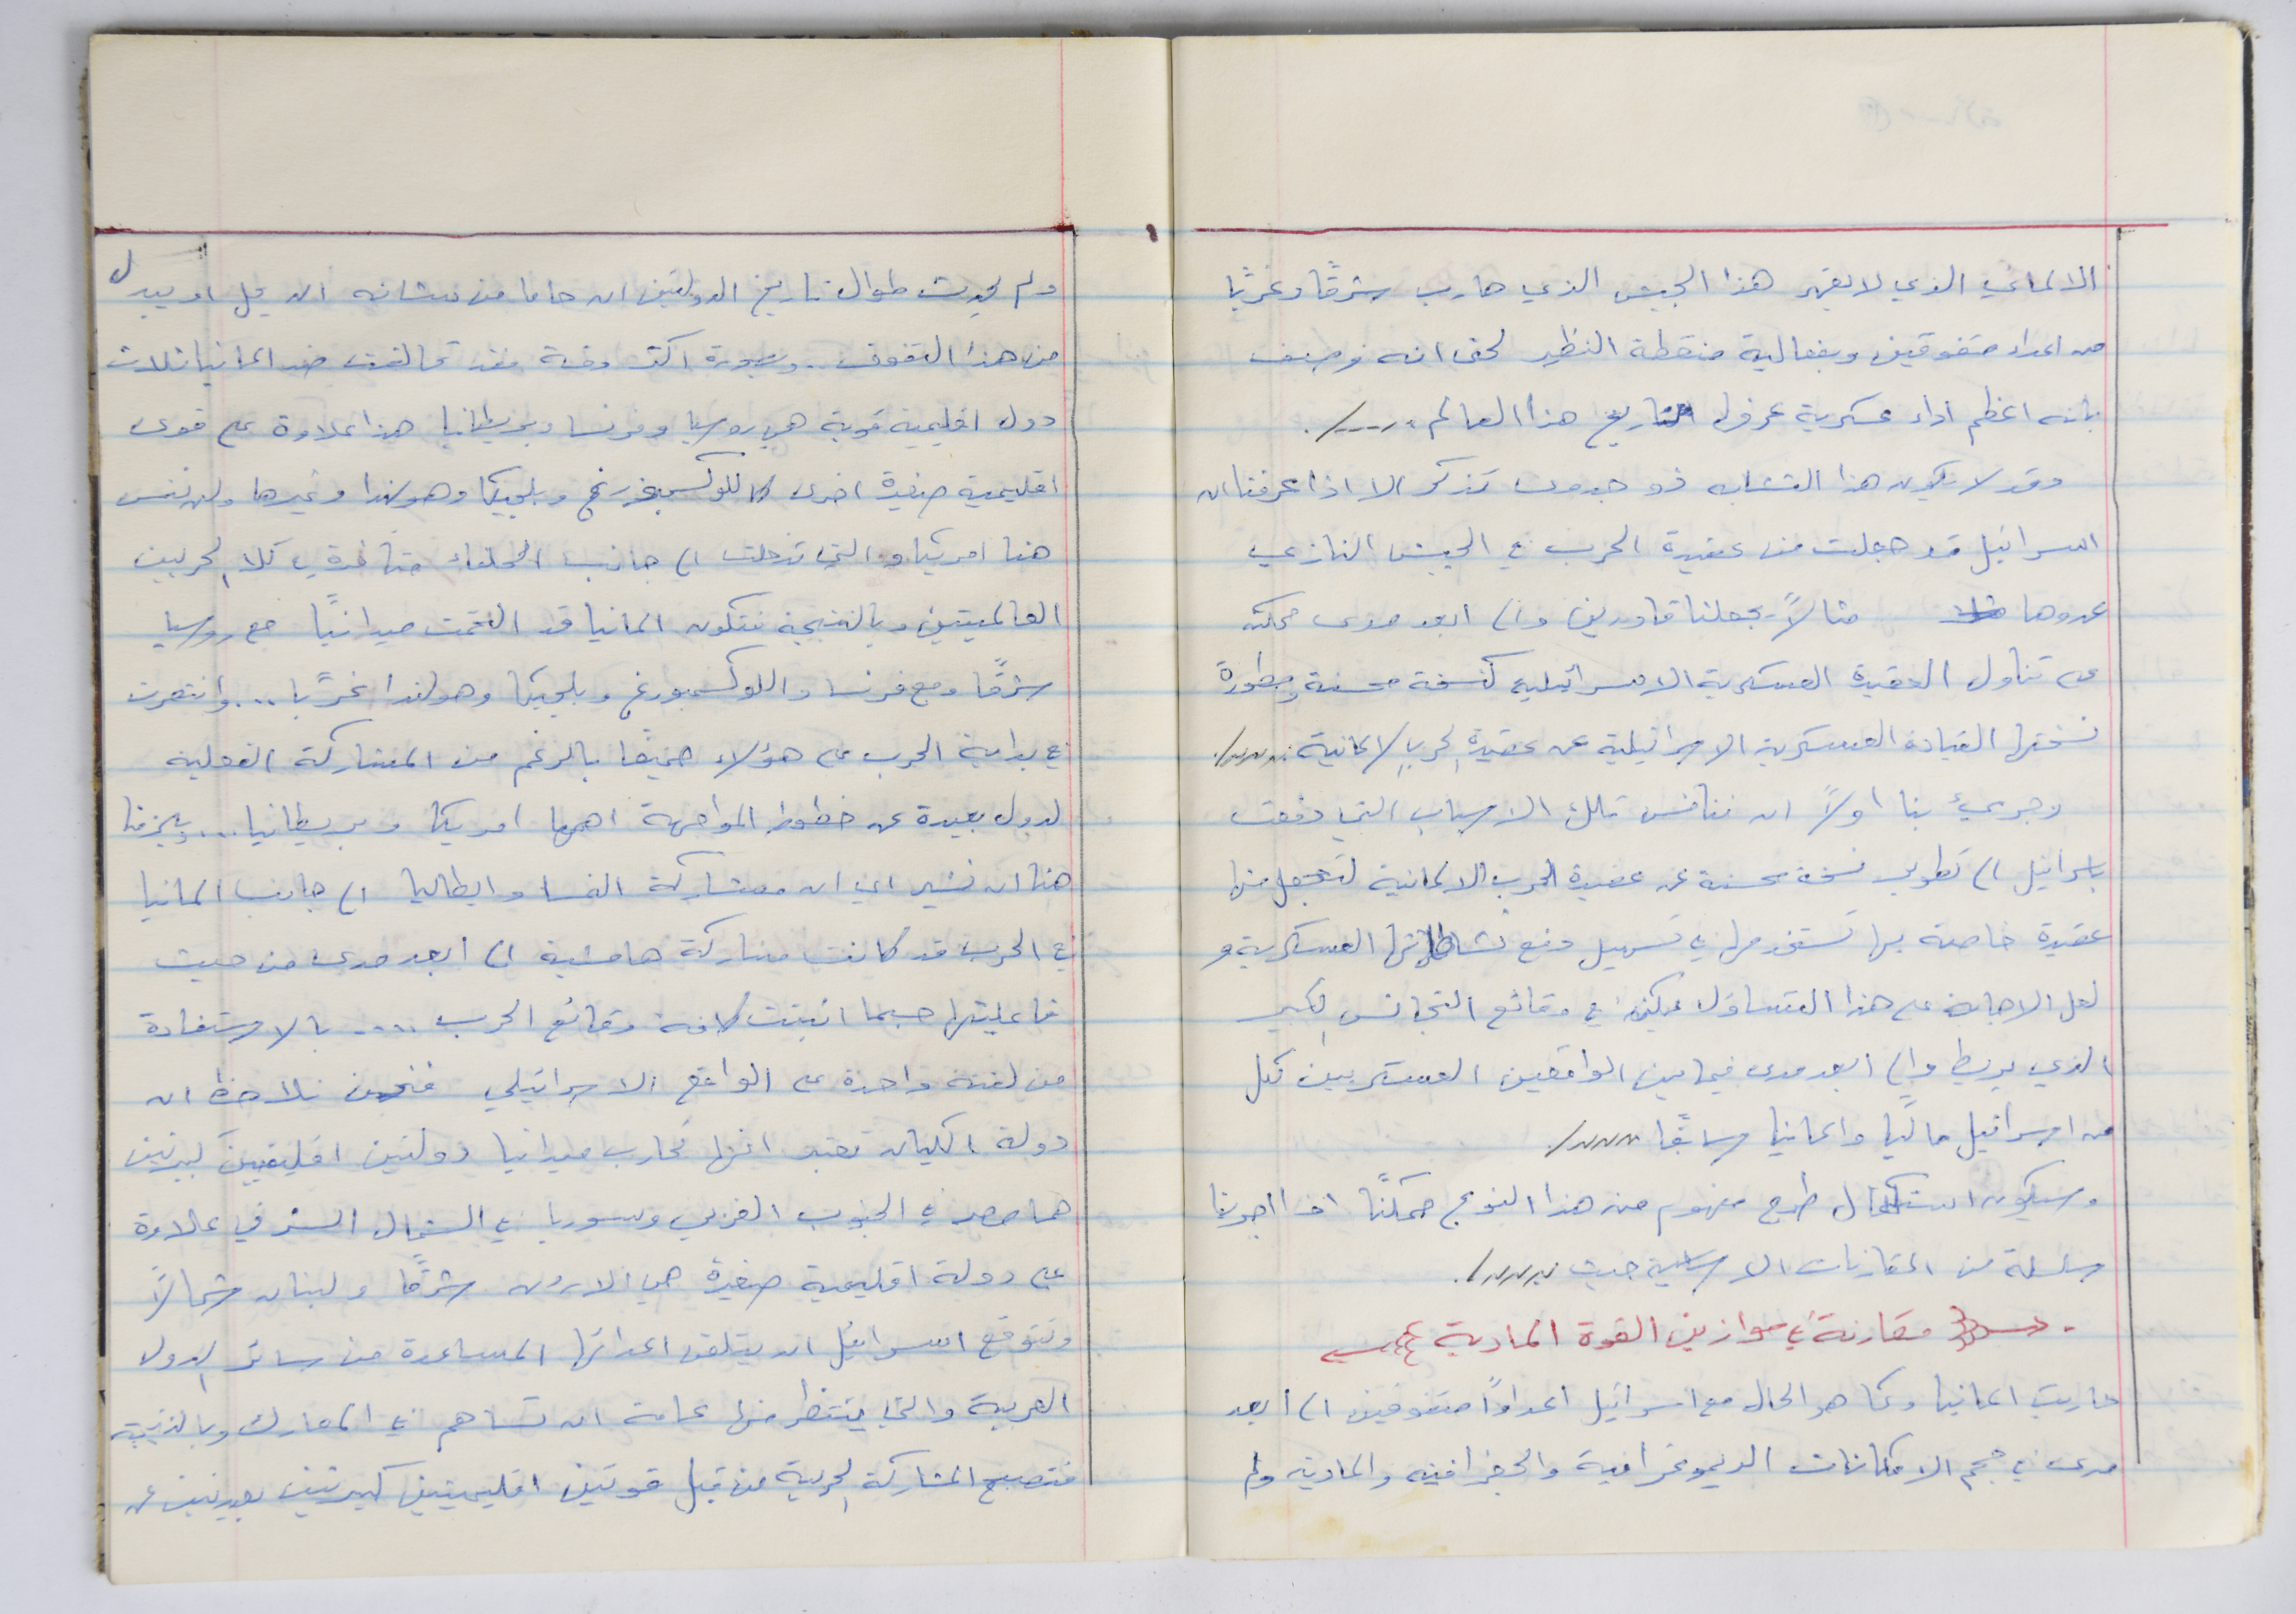 الالماني الذي لا يقهر هذا الجيش الذي حارب شرقًا وغربًا
من اعداد متفوقين وبفعالية منقطة النظير لحتى انه وصف
بانه اعظم اداء عسكرية عرفها تاريخ هذا العالم ...../.
وقد لا يكون هذا التشابه ذو جدوى تذكر الا اذا عرفنا ان
اسرائيل قد جعلت من عقيدة الحرب في الجيش النازي
عدوها مثالاً يجعلنا قادرين والى ابعد مدى ممكنه
على تناول العقيدة العسكرية الاسرائيلية كنسخة محسنة ومطورة
نسختها القيادة العسكرية الاسرائيلية عن عقيدة الحرب الالمانية ...../.
وجريء بنا اولاً ان نناقش تلك الاسباب التي دفعت
باسرائيل الى تطوير نسخة محسنة عن عقيدة الحرب الالمانية لتجعل منها
عقيدة خاصة بها تستخدمها في تسهيل دفع نشاطاتها العسكرية و
لعل الاجابة على هذا التساؤل تمكن في وقائع التجانس الكبير
الذي يربط والى ابعد مدى فيما بين الواقعين العسكريين لكل
من اسرائيل حاليًا والمانيا سابقًا ...../.
وسيكون استكمال طرح مفهوم من هذا النوع ممكنًا اذا اجرينا
سلسلة من المقارنات الاساسية حيث ...../.
- مقارنة في موازين القوة المادية
حاربت المانيا وكما هو الحال مع اسرائيل اعداءًا متفوقين الى ابعد
مدى في حجم الامكانات الديموغرافية والجغرافية والمادية ولم
ولم يحدث طوال تاريخ الدولتين ان حاما من شانه ان يخل او يبدل
من هذا التفوق .. وبصورة اكثر دقة فقد تحالفت ضد المانيا ثلاث
دول اقليمية قوية هي روسيا وفرنسا وبريطانيا هذا علاوة على قوى
اقليمية صغيرة اخرى كاللوكسمبورغ وبلجيكا وهولندا وغيرها ولن ننسى
هنا امريكا والتي تدخلت الى جانب الحلفاء متاخرة في كلا الحربين
العالميتين وبالنتيجة فتكون المانيا قد التحمت ميدانيًا مع روسيا
شرقًا ومع فرنسا واللوكسمبورغ وبلجيكا وهولندا غربًا ... وانتصرت
في بداية الحرب على هؤلاء جميعًا بالرغم من المشاركة الفعلية
لدول بعيدة عن خطوط المواجهة اهمها امريكا وبريطانيا ... ويلزمنا
هنا ان نشير الى ان مشاركة النمسا وايطاليا الى جانب المانيا
في الحرب قد كانت مشاركة هامشية الى ابعد مدى من حيث
فاعليتها حسبما اثبتت كافة وقائع الحرب ..... بالاستفادة
من لفتة واحدة على الواقع الاسرائيلي فنحن نلاحظ ان
دولة الكيان تعتبر انها تحارب ميدانيا دولتين اقليميتين كبيرتين
هما مصر في الجنوب الغربي وسوريا في الشمال الشرقي علاوة
على دولة اقليمية صغيرة هي الاردن شرقًا ولبنان شمالاً
وتتوقع اسرائيل ان يتلقى اعدائها المساعدة من سائر الدول
العربية والتي ينتظر منها عامة ان تساهم في المعارك وبالنتيجة
فتصبح المشاركة الحربية من قبل قوتين اقليميتين كبيرتين بعيدتين عن